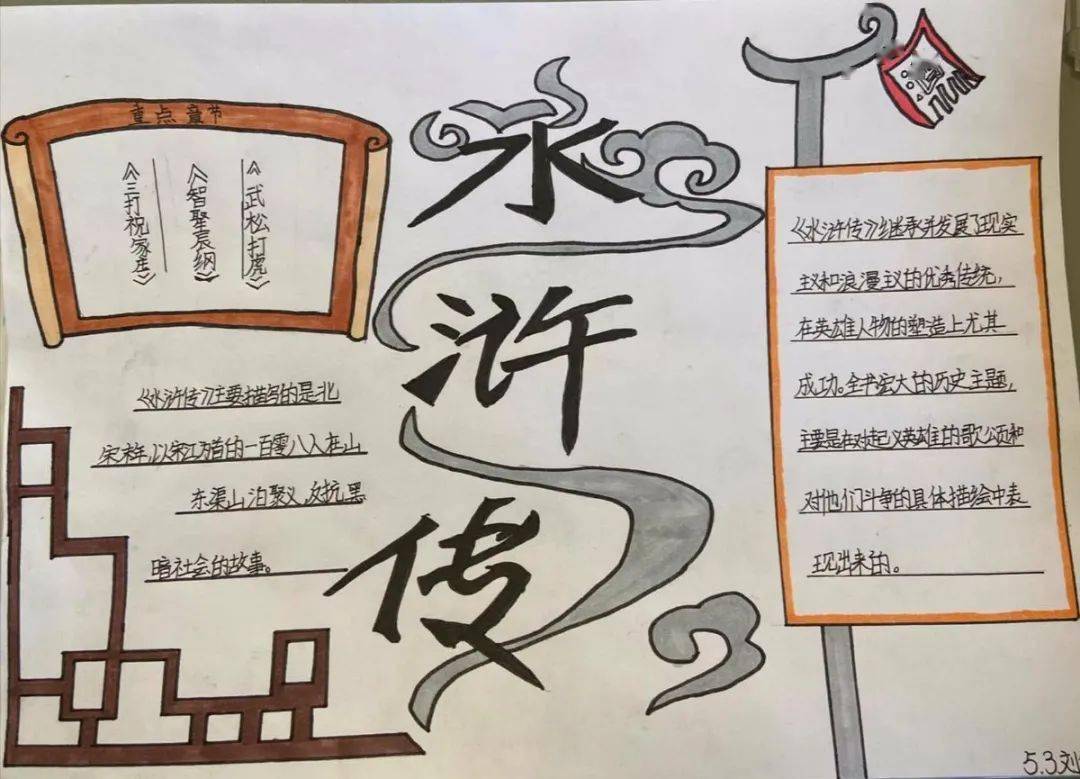 水浒传
重点章节
《武松打虎》
《智取生辰纲》
《三打祝家庄》
《水浒传》主要描写的是北
宋末年,以宋江为首的一百零八人在山
东梁山泊聚义,反抗黑
暗社会的故事。
《水浒传》继承并发展了现实
主义和浪漫主义的优秀传统,
在英雄人物的塑造上尤其
成功。全书宏大的历史主题,
主要是在对起义英雄的歌颂和
对他们斗争的具体描绘中表
现出来的。
5.3刘